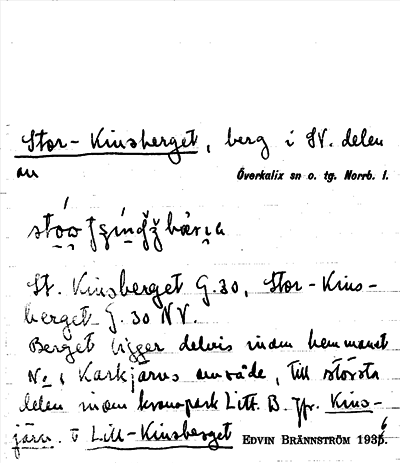 Stor-Kinsberget, berg i SV. delen
av Överkalix sn o. tg. Norrb. l.
St. Kinsberget G.30, Stor-Kins-
berget G. 30 NV.
Berget ligger delvis inom hemmanet
No 1 Karkjärvs område, till största
delen inom kronopark Litt. B. Jfr. Kins-
järv. o Lill-Kinsberget EDVIN BRÄNNSTRÖM 1936.